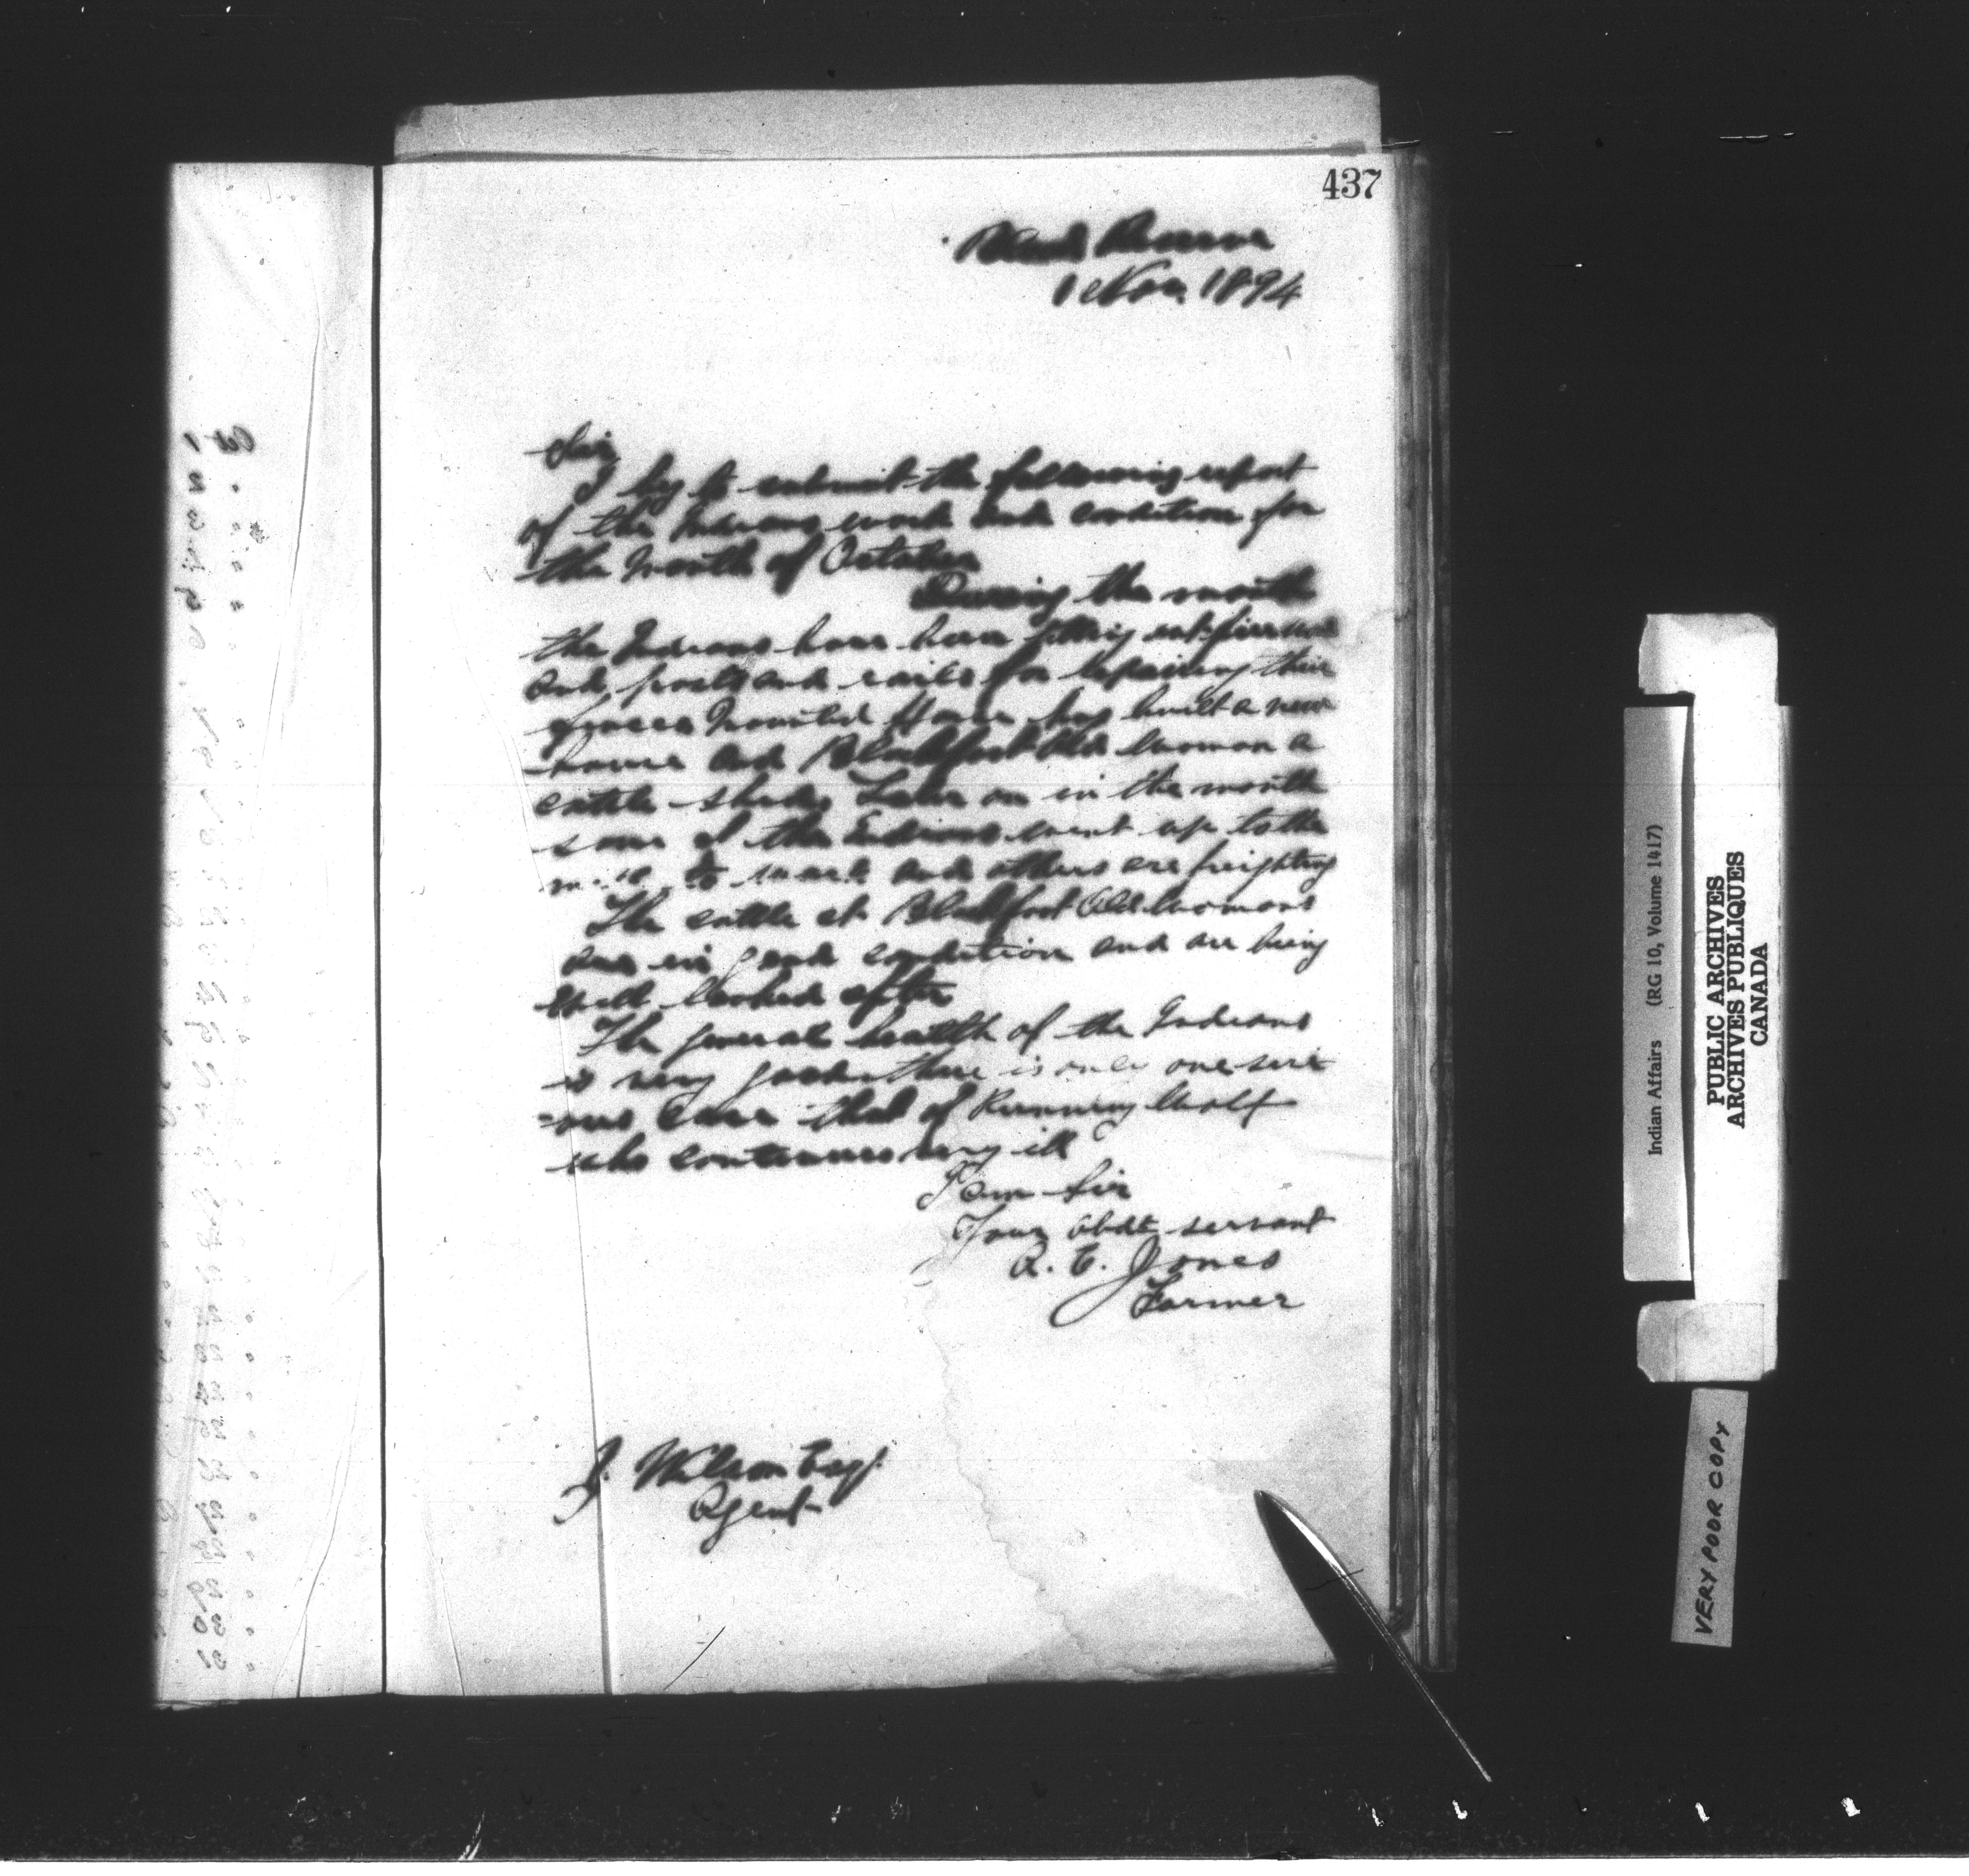 437
Blood Reserve
1 Nov. 1894
Sir
I beg to submit the following report
of the Indians work and condition for
the month of October
During the month
the Indians have been getting out firewood
and posts and rails for repairing their
fences Mounted Horse has built a new
house and Blackfoot Old Woman a
cattle shed. Later on in the month
some of the Indians went up to the
mill to work and others are freighting
The cattle at Blackfoot Old Womans
are in good condition and are being
well looked after
The general health of the Indians
is very good there is only one seri
=ous case that of Running Wolf
who continues very ill
I am Sir
Your obdt servant
R. E. Jones
Farmer
J. Wilson Esq.
Agent
Indian Affairs (RG 10, Volume 1417)
PUBLIC ARCHIVES
ARCHIVES PUBLIQUES
CANADA
VERY POOR COPY